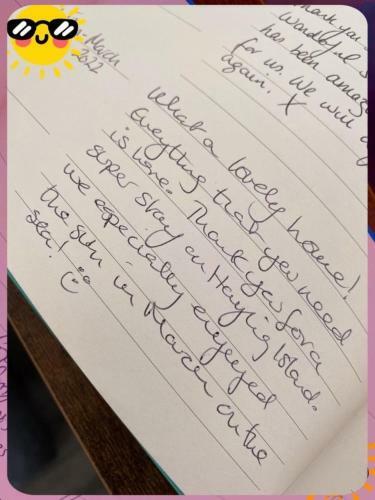 March
2022
Thank you
Wonderful s
has been amaz
for us. We will
again. X
What a lovely home!
Eveything that you need
is here. Thank you for a
super stay on Hayling Island.
We especially enjoyed
the sun in March on the
sea!